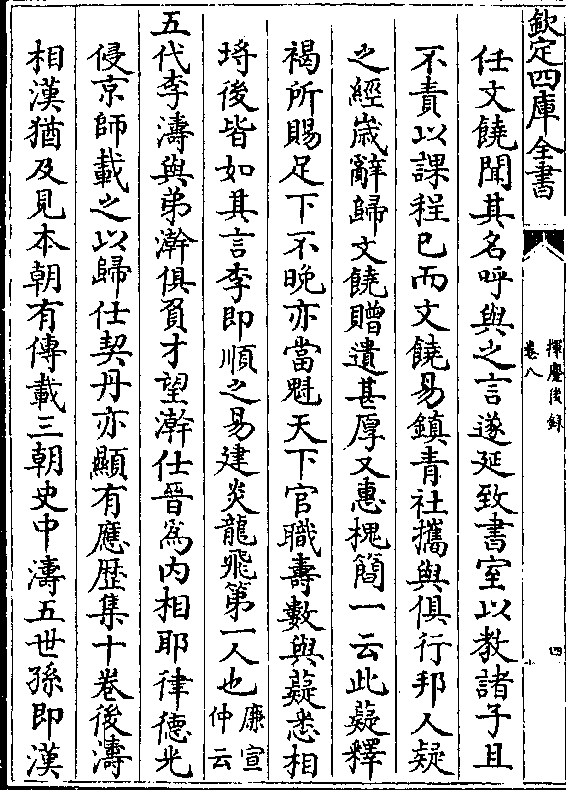 欽定四庫全書
揮麈後録
卷八
四
任文饒聞其名呼與之言遂延致書室以教諸子且
不責以課程已而文饒易鎮青社攜與俱行邦人疑
之經歳辭歸文饒贈遺甚厚又惠槐簡一云此薿釋
褐所賜足下不晚亦當魁天下官職壽數與薿悉相
埓後皆如其言李即順之易建炎龍飛第一人也廉宣
仲云
五代李濤與弟澣俱負才望澣仕晉為内相耶律德光
侵京師載之以歸仕契丹亦顯有應歴集十卷後濤
相漢猶及見本朝有傳載三朝史中濤五世孫即漢